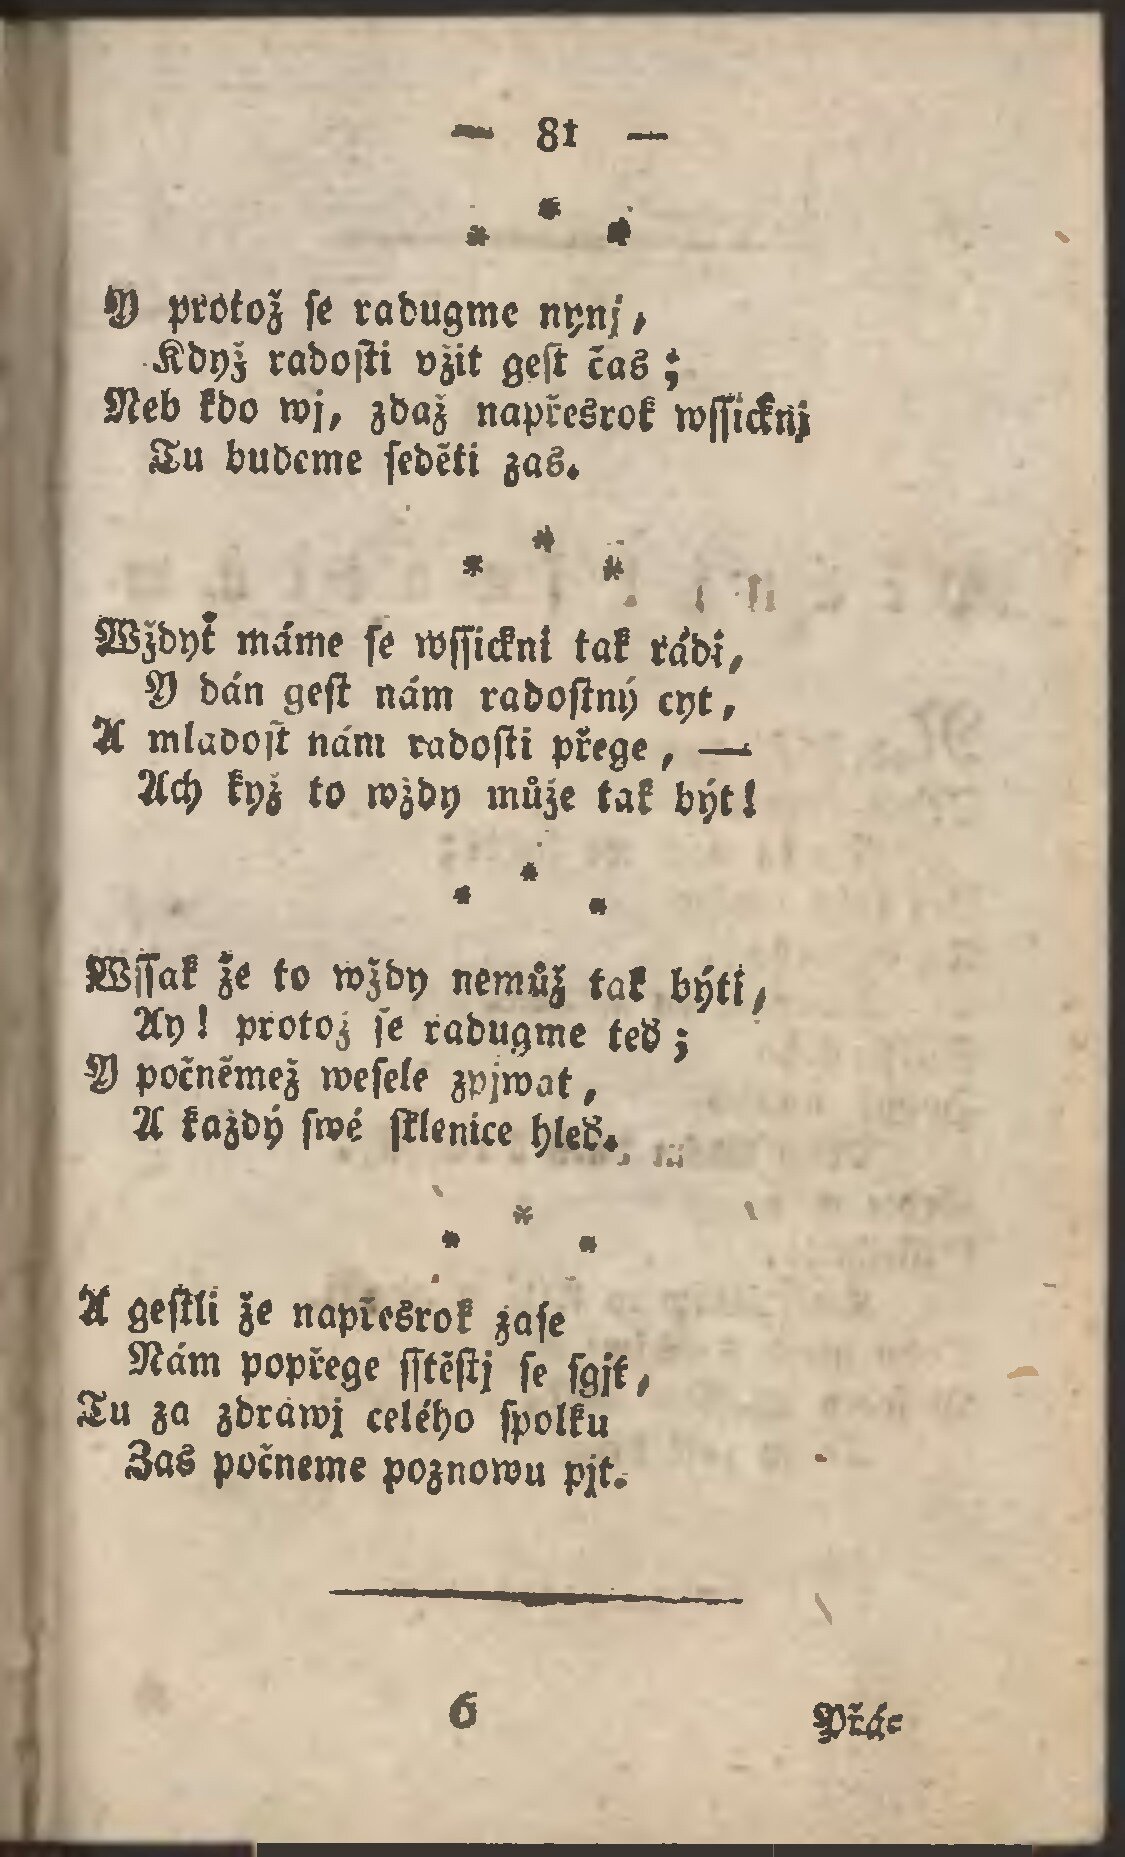 — 81 —
* * *
Y protož ſe radugme nynj,
Když radoſti vžit geſt čas;
Neb kdo wj, zdaž napřesrok wſſickni
Tu budeme ſeděti zas.
* * *
Wždyť máme ſe wſſickni tak rádi,
Y dán geſt nám radoſtný cyt,
A mladoſt nám radoſti přege, —
Ach kyž to wždy může tak být!
* * *
Wſſak že to wždy nemůž tak býti,
Ay! protož ſe radugme teď;
Y počněmež weſele zpjwat,
A každý ſwé ſklenice hleď.
* * *
A geſtli že napřesrok zaſe
Nám popřege ſſtěſtj ſe ſgjt,
Tu za zdrawj celého ſpolku
Zas počneme poznowu pjt.
6 Přá⸗